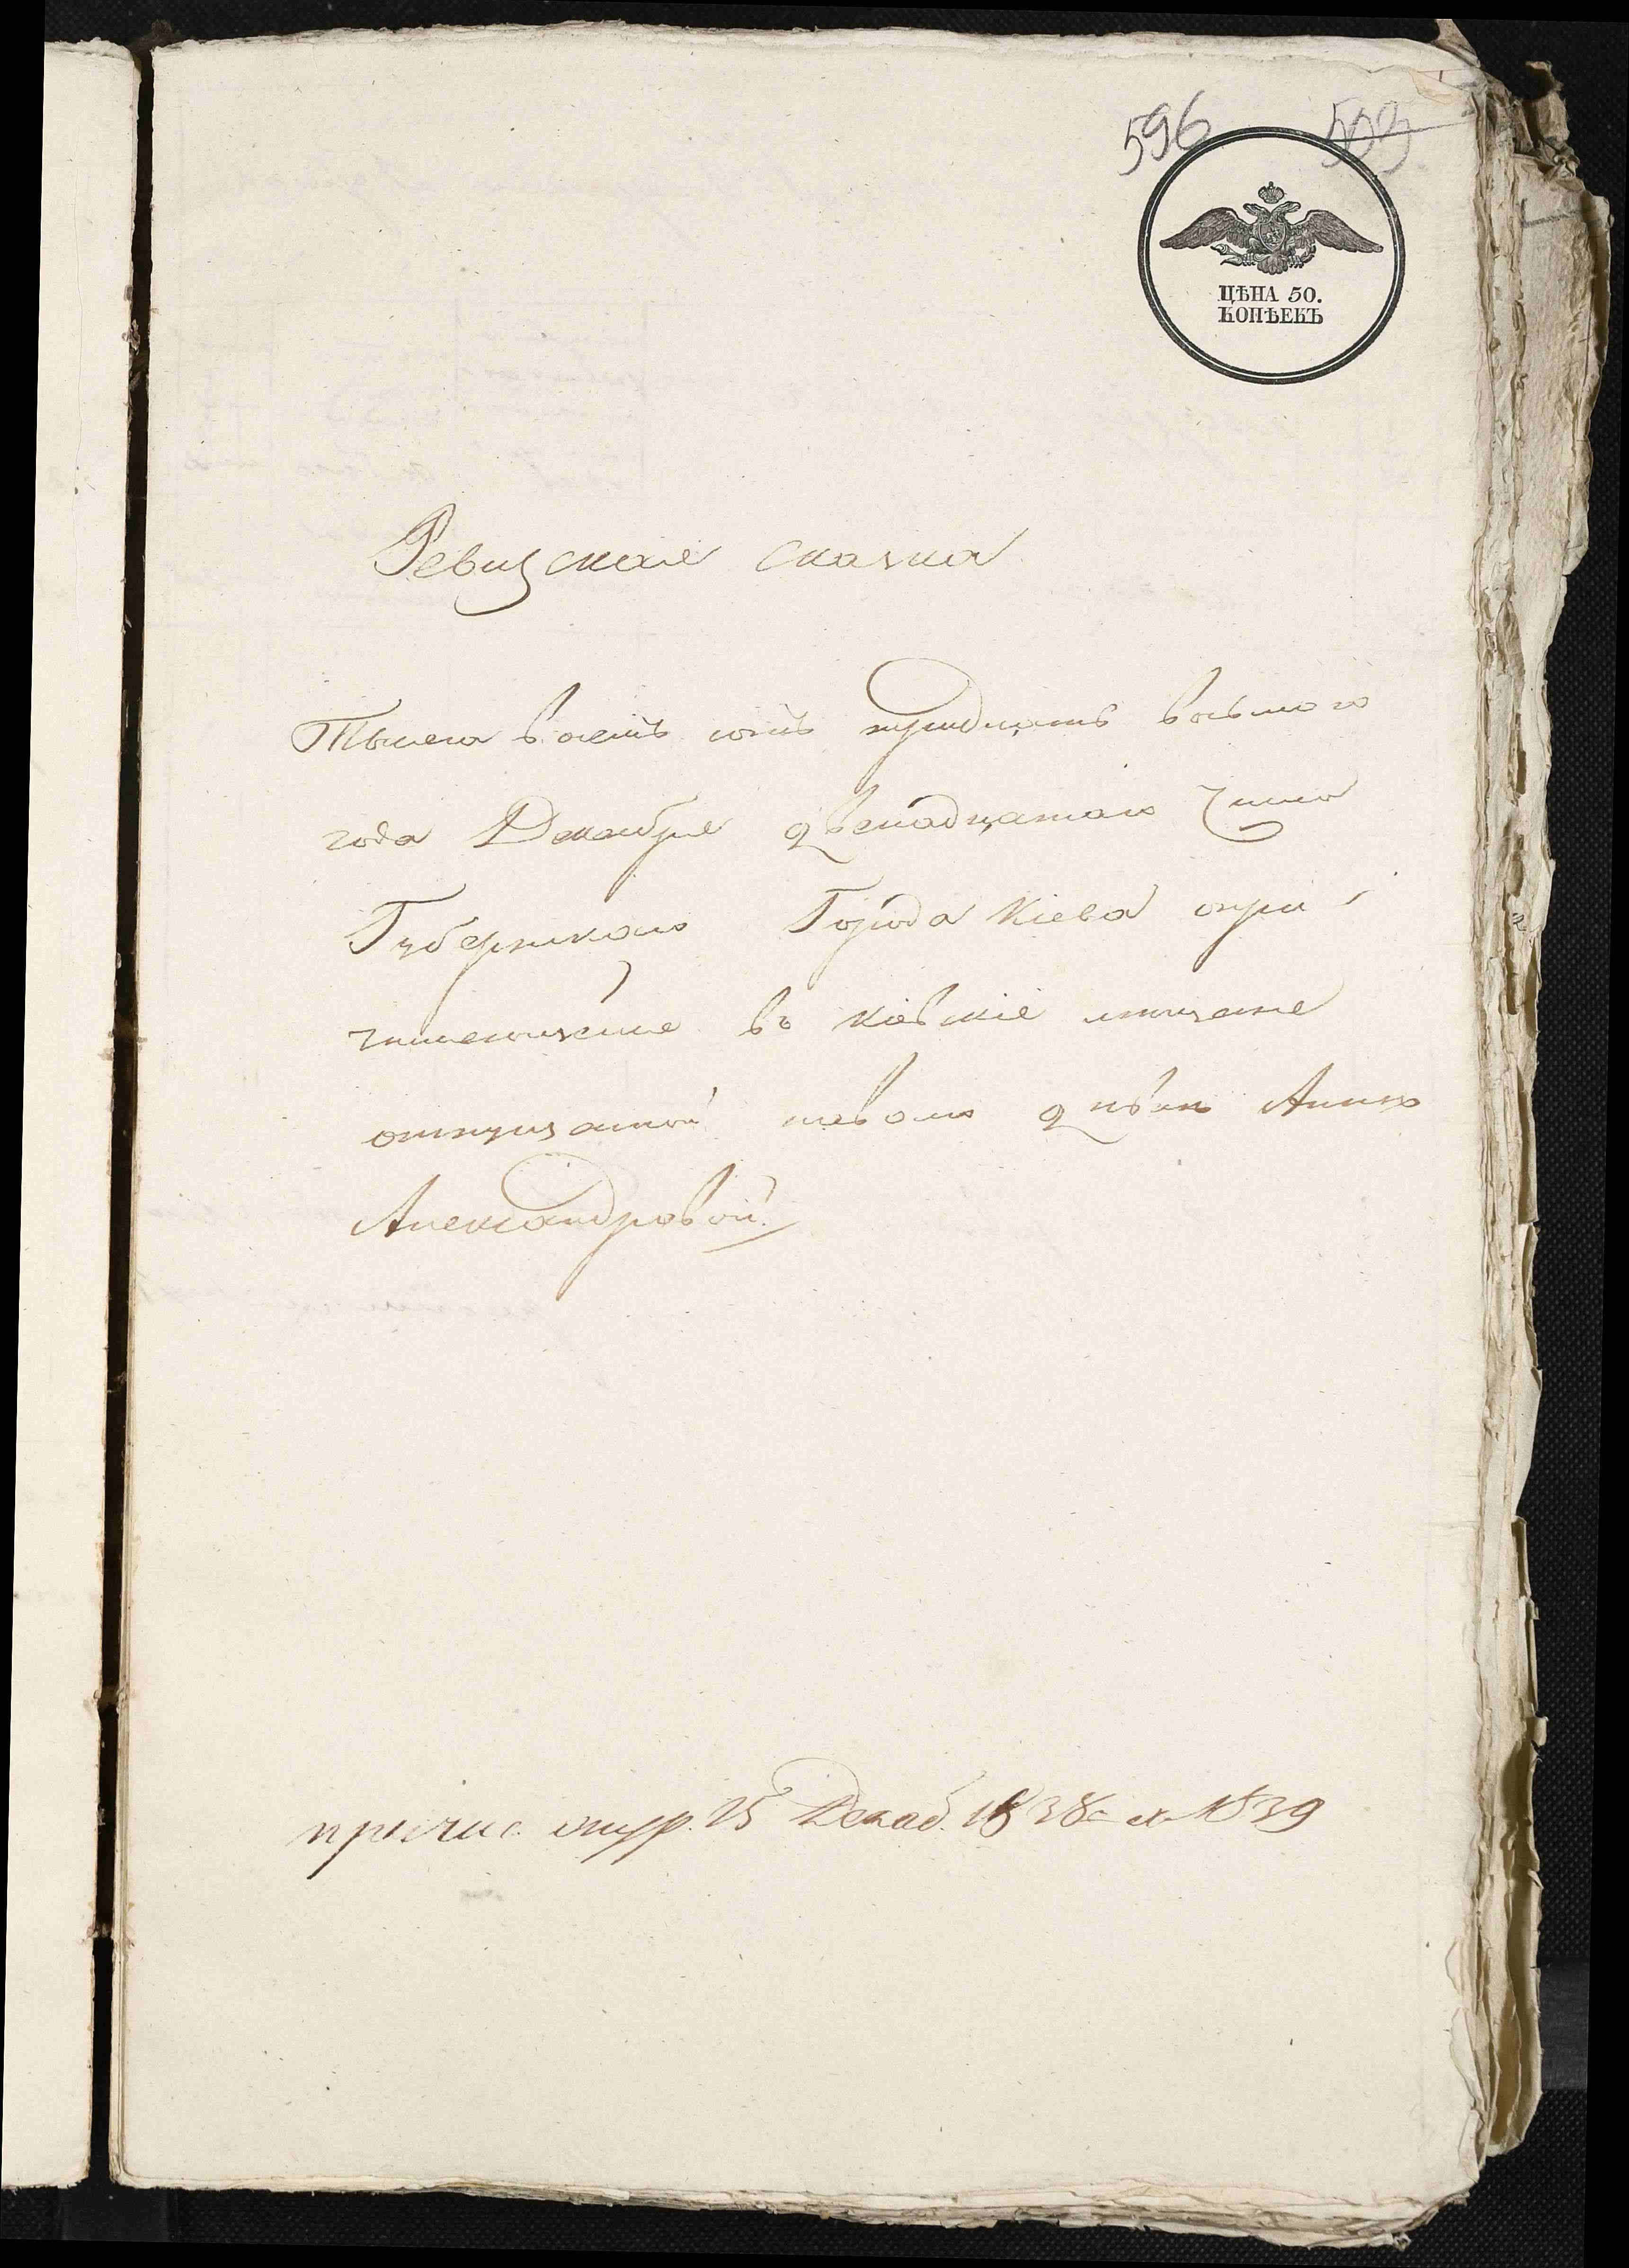 596 503
ЦѢНА 50.
КОПѢЕКЪ
Ревизская сказка
Тысеча восемь сотъ тридцать восьмого
года Декабря двенадцатаго числа
Губернскаго Города Кіева опри
численіи въ кіевскіе мещане
отпущеной на волю девки Анны
Александровой.
причис. 15 Декаб. 1838 1839